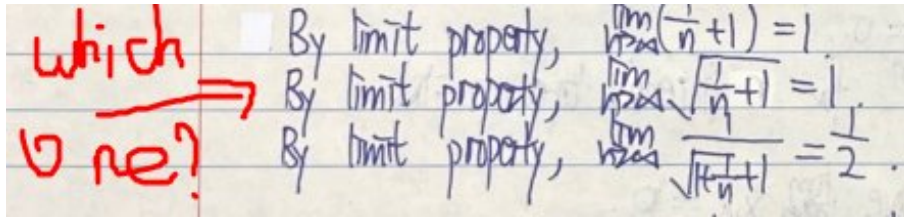 which
one?
By limit property, lim n→∞ (1/n + 1) = 1
By limit property, lim n→∞ √(1/n + 1) = 1.
By limit property, lim n→∞ 1/(√(1+1/n) + 1) = 1/2.